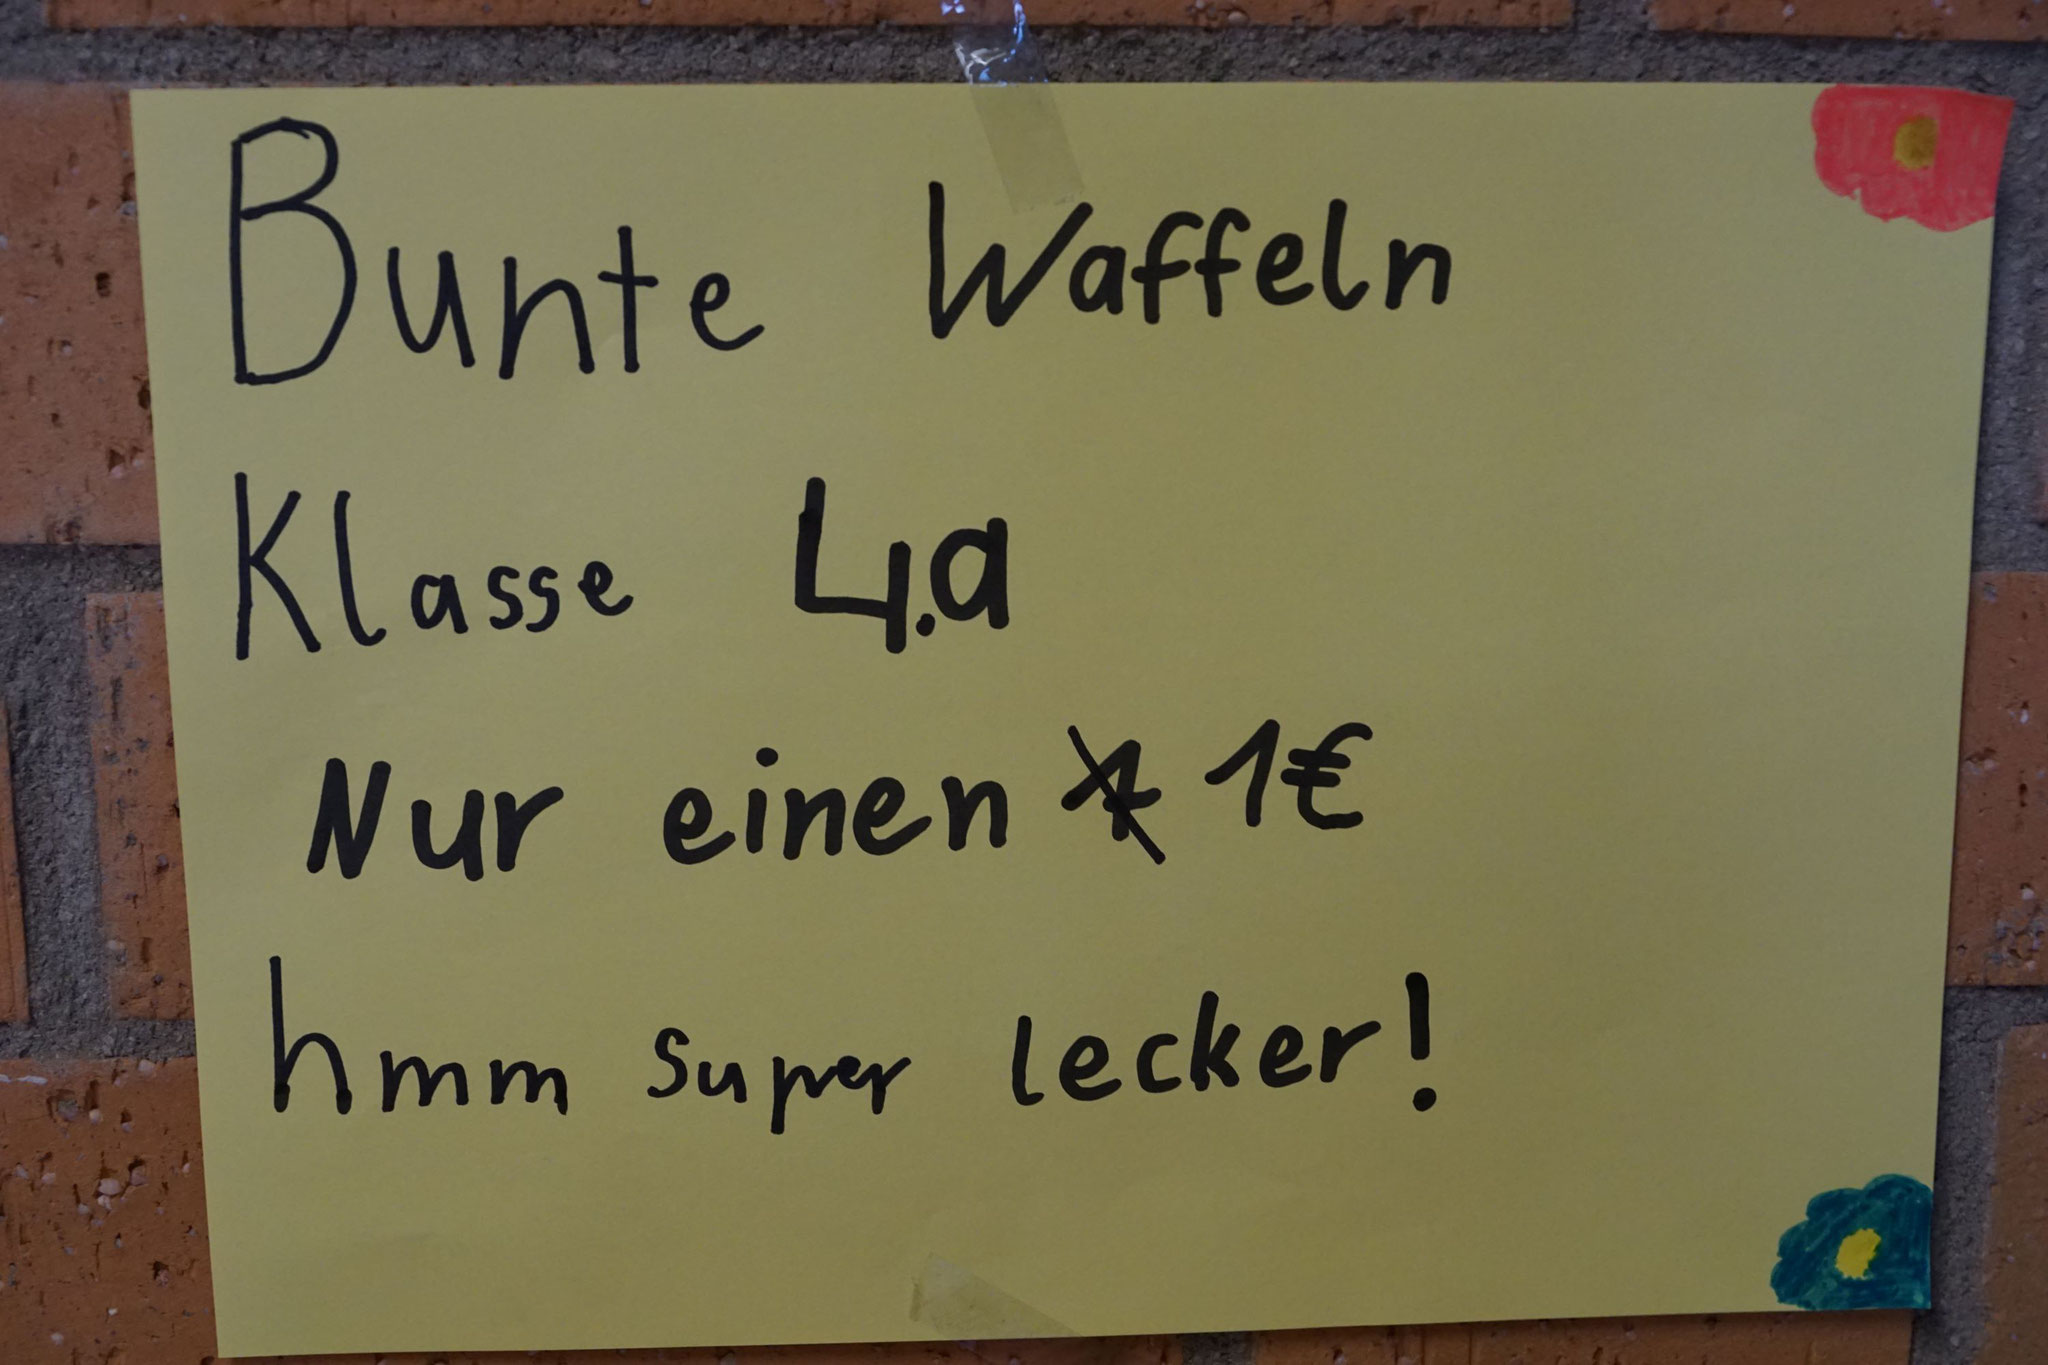 Bunte Waffeln
Klasse 4.a
Nur einen 1€
hmm super lecker!